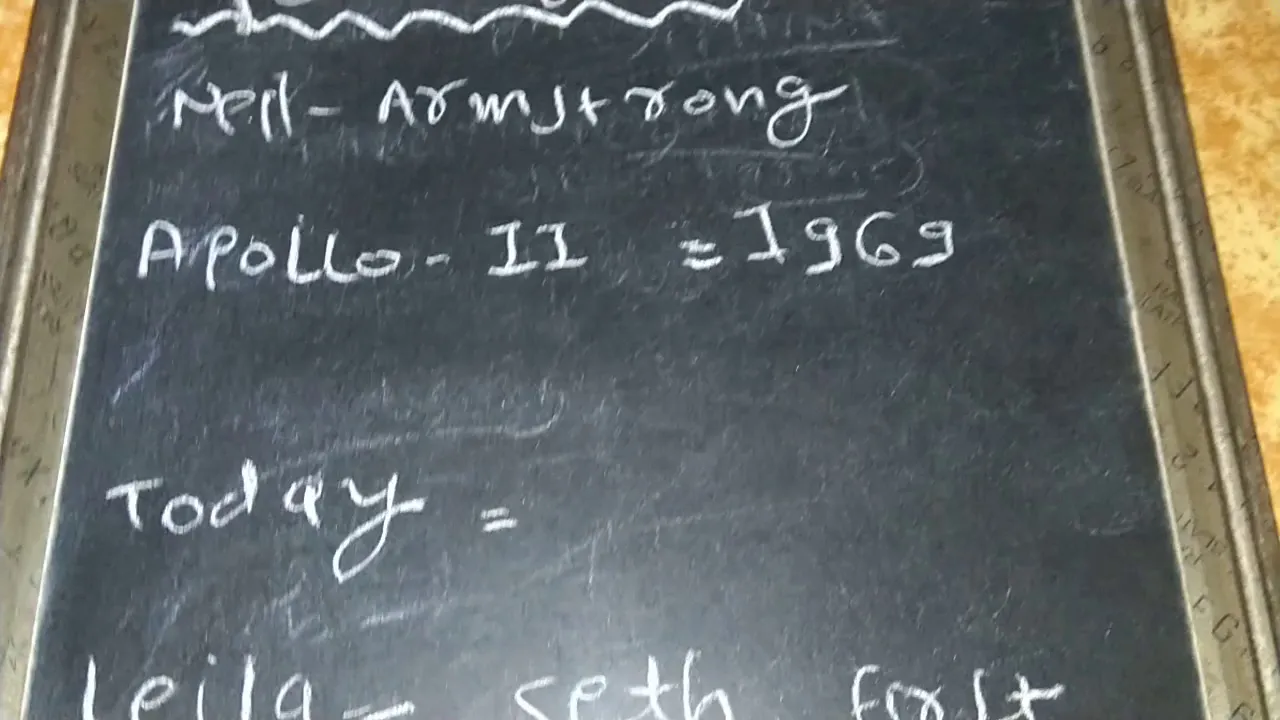 Neil - Armstrong
Apollo - II = 1969
Today =
Leila - seth first